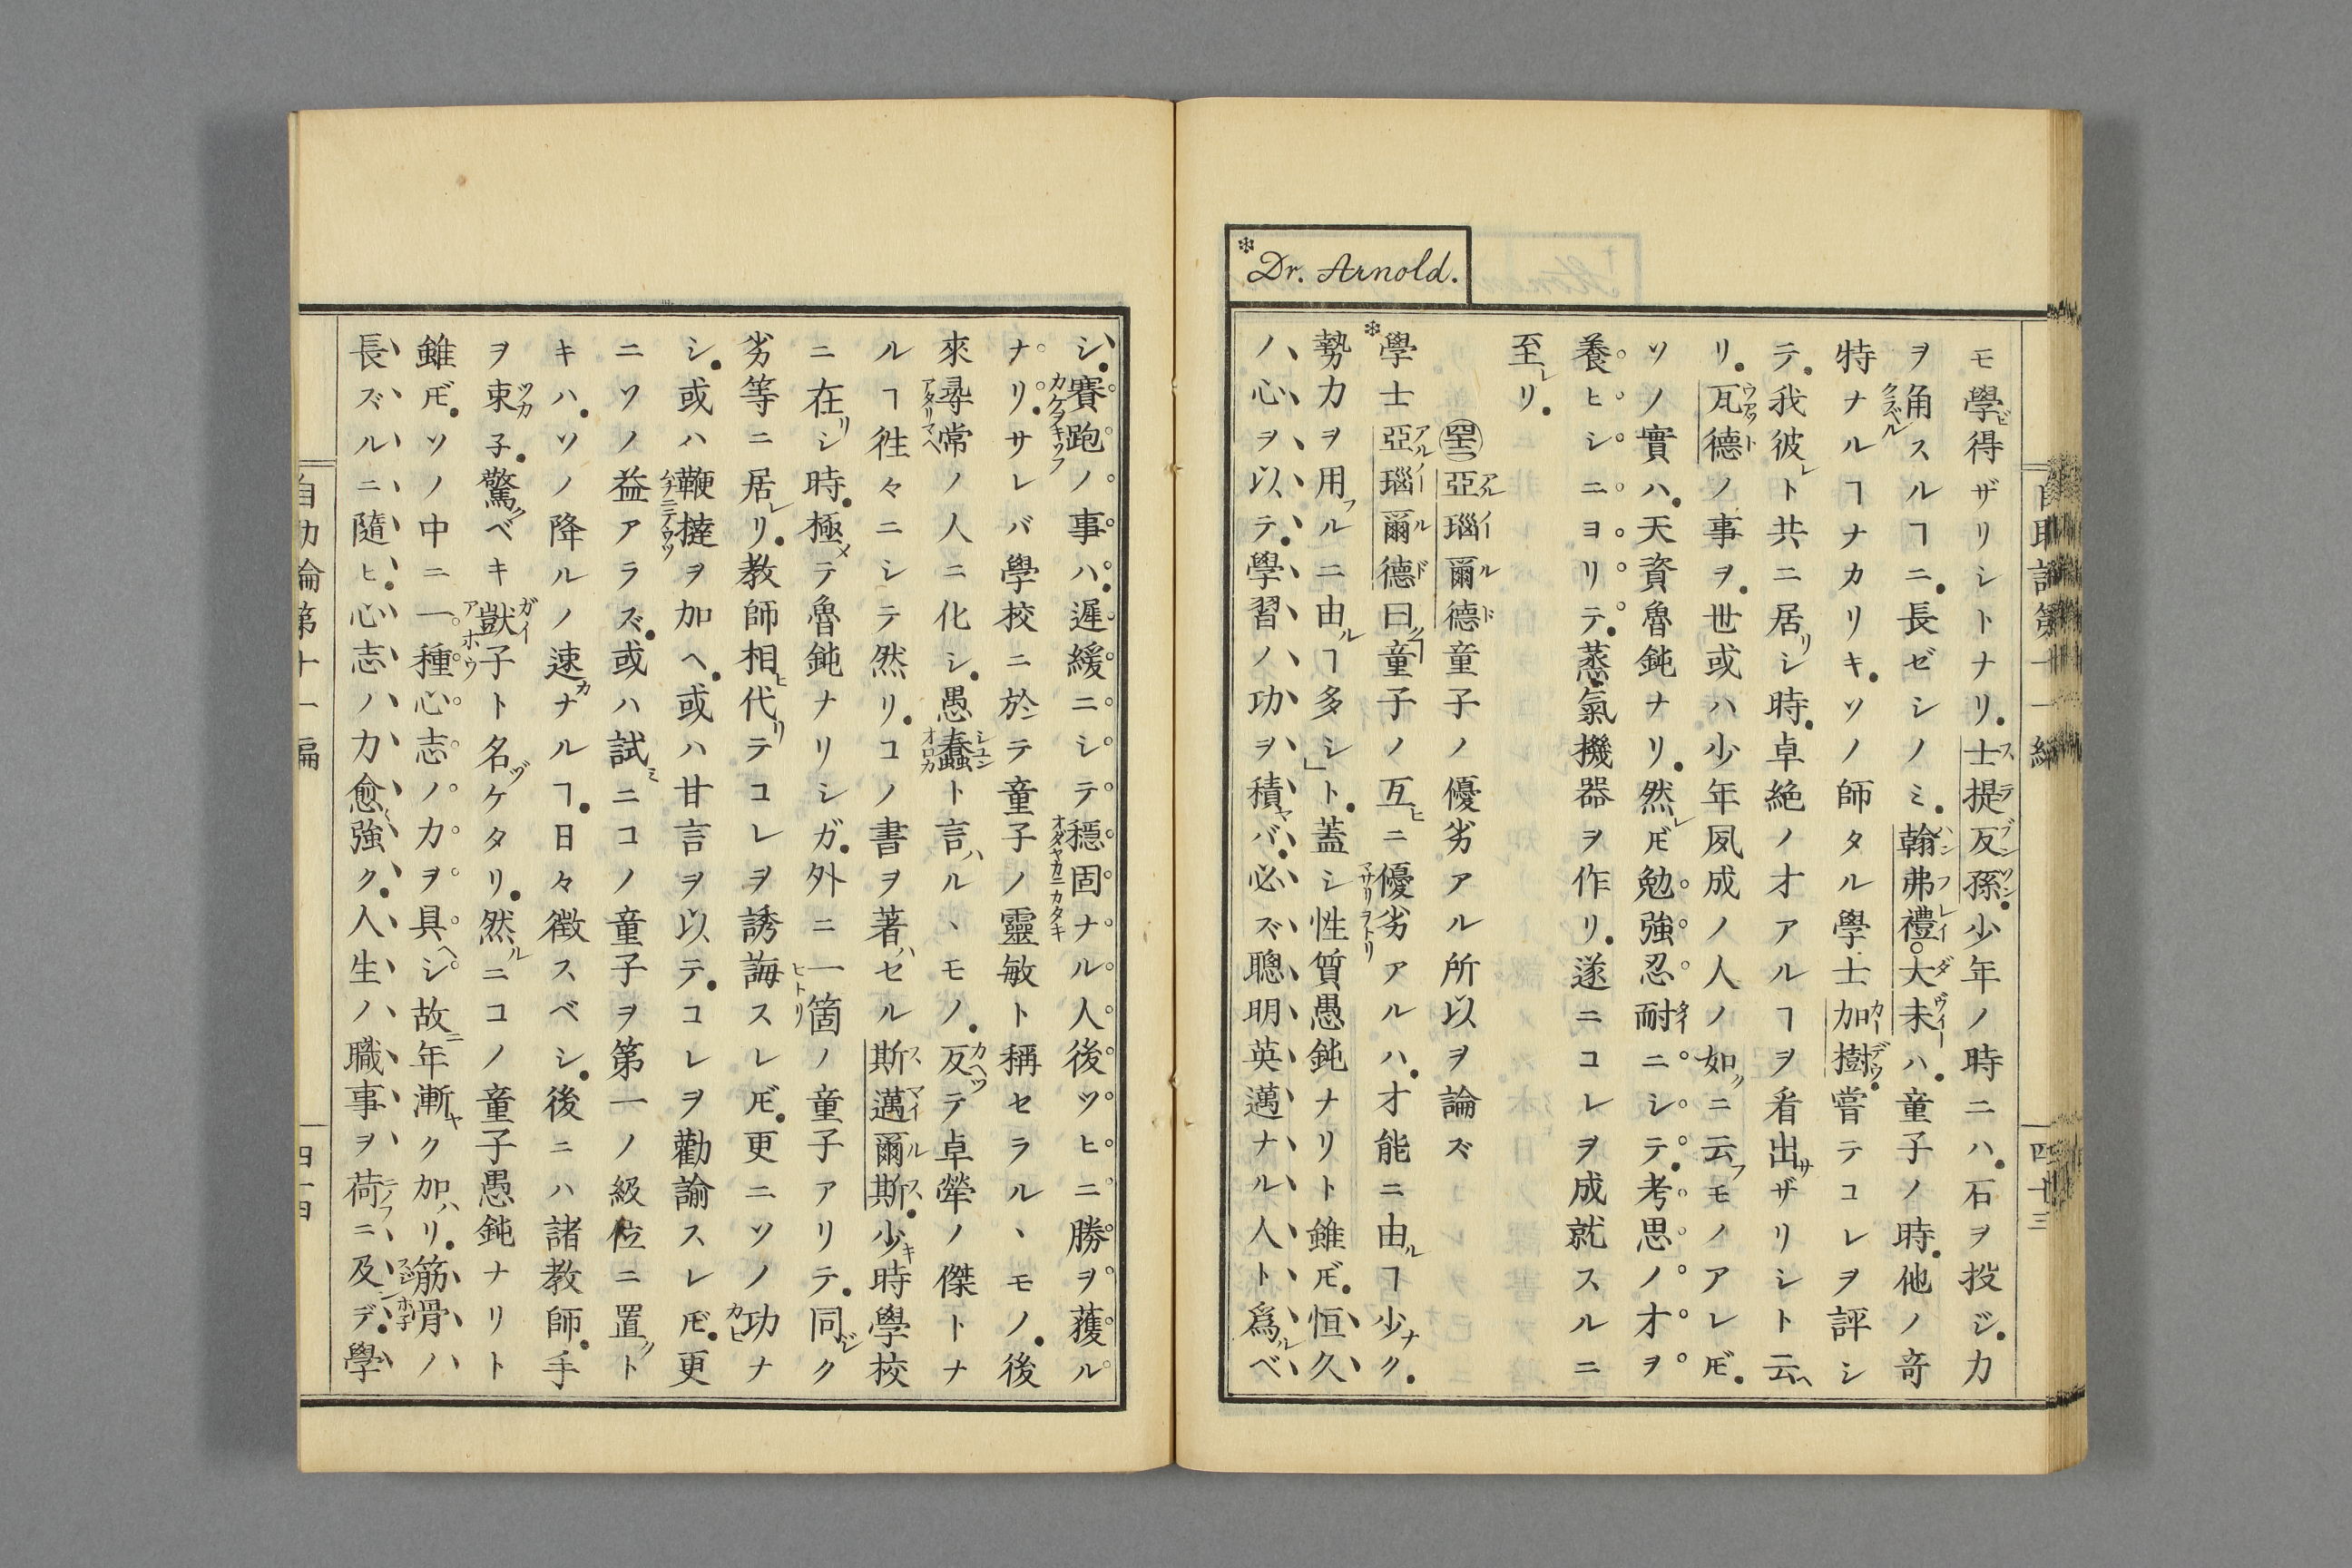 自助論第十一編
四十三
モ學ビ得ザリシトナリ。士提反孫。少年ノ時ニハ。石ヲ投ジ。力
ヲ角スルヿニ。長ゼシノミ。翰弗禮。大未ハ。童子ノ時。他ノ竒
特ナルヿナカリキ。ソノ師タル學士加樹。嘗テコレヲ評シ
テ。我彼レト共ニ居リシ時。卓絶ノ才アルヿヲ看出サザリシト云ヘ
リ。瓦德ノ事ヲ。世或ハ少年夙成ノ人ノ如クニ云フモノアレ𪜈。
ソノ實ハ。天資魯鈍ナリ。然レ𪜈勉強忍耐ニシテ。考思ノ才ヲ
養ヒシニヨリテ。蒸氣機器ヲ作リ。遂ニコレヲ成就スルニ
至レリ。
亞瑙爾德童子ノ優劣アル所以ヲ論ズ
*Dr. Arnold.
*學士亞瑙爾德曰ク「童子ノ互ヒニ優劣アルハ。才能ニ由ルヿ少ナク。
勢力ヲ用フルニ由ルヿ多シ」ト。蓋シ性質愚鈍ナリト雖𪜈。恒久
ノ心ヲ以テ。學習ノ功ヲ積ヤバ。必ズ聰明英邁ナル人ト爲ルベ
シ。賽跑ノ事ハ。遲緩ニシテ穩固ナル人後ツヒニ勝ヲ獲ル
ナリ。サレバ學校ニ於ンテ童子ノ靈敏ト稱セラルヽモノ。後
來尋常ノ人ニ化シ。愚蠢ト言ハルヽモノ。反テ卓犖ノ傑トナ
ルヿ徃々ニシテ然リ。コノ書ヲ著ハセル斯邁爾斯。少キ時學校
ニ在リシ時。極メテ魯鈍ナリシガ。外ニ一箇ノ童子アリテ。同ジク
劣等ニ居レリ。教師相ヒ代リテコレヲ誘誨スレ𪜈。更ニソノ功ナ
シ。或ハ鞭撻ヲ加ヘ。或ハ甘言ヲ以テ。コレヲ勸諭スレ𪜈。更
ニソノ益アラズ。或ハ試ミニコノ童子ヲ第一ノ級位ニ置クト
キハ。ソノ降ルノ速カナルヿ。日々徵スベシ。後ニハ諸教師。手
ヲ束子。驚クベキ獃子ト名ヅケタリ。然ルニコノ童子愚鈍ナリト
雖𪜈。ソノ中ニ一種心志ノ力ヲ具ヘシ故ニ年漸ヤク加ハリ。筋骨ハ
長ズルニ隨ヒ。心志ノ力愈々強ク。人生ノ職事ヲ荷ニ及ンデ。學
自助論第十一編
四十四